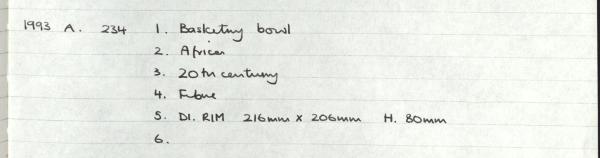 1993 A. 234 1. Basketry bowl
2. African
3. 20th century
4. Fibre
5. DI. RIM 216mm x 206mm H. 80mm
6.